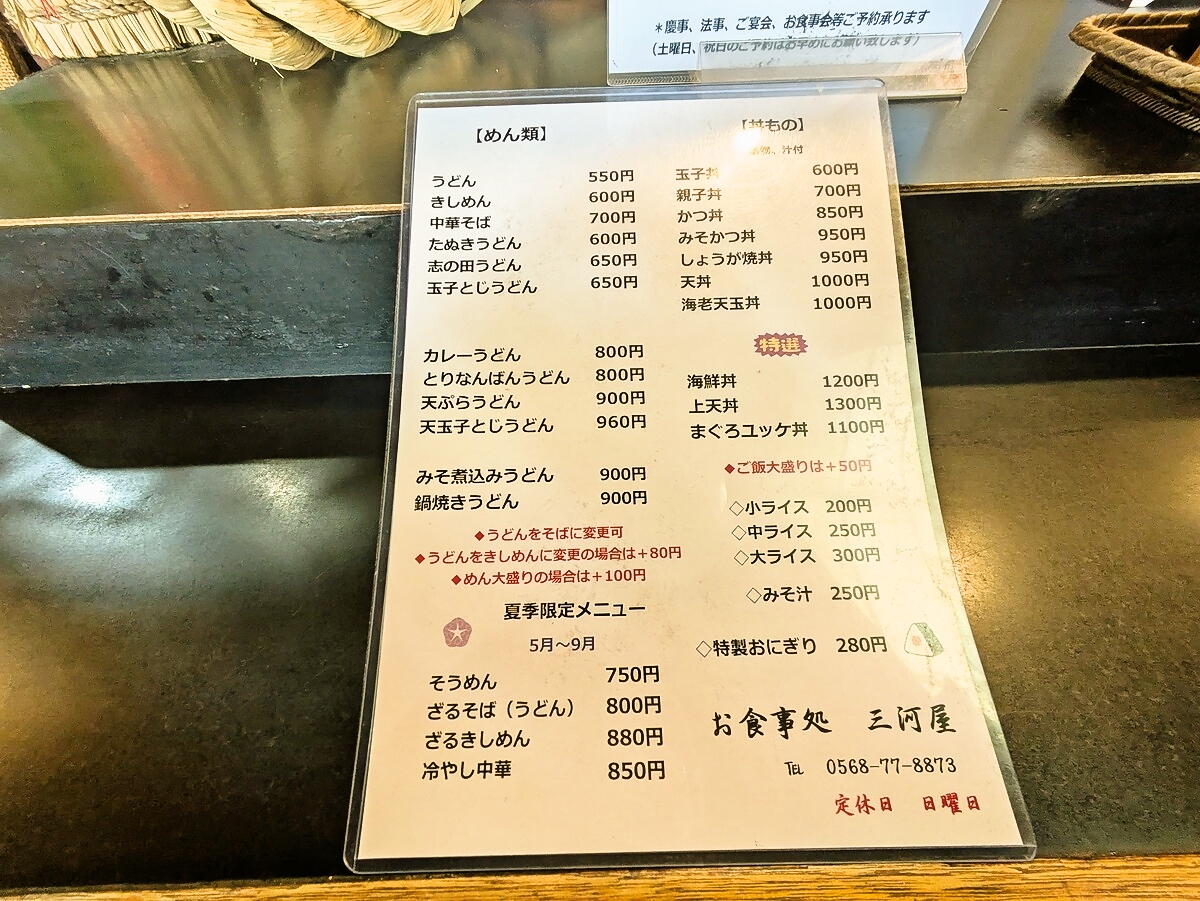 *慶事、法事、ご宴会、お食事会等ご予約承ります
(土曜日、祝日のご予約はお早めにお願い致します)
【めん類】
うどん 550円
きしめん 600円
中華そば 700円
たぬきうどん 600円
志の田うどん 650円
玉子とじうどん 650円
カレーうどん 800円
とりなんばんうどん 800円
天ぷらうどん 900円
天玉子とじうどん 960円
みそ煮込みうどん 900円
鍋焼きうどん 900円
◆うどんをそばに変更可
◆うどんをきしめんに変更の場合は+80円
◆めん大盛りの場合は+100円
夏季限定メニュー
5月~9月
そうめん 750円
ざるそば(うどん) 800円
ざるきしめん 880円
冷やし中華 850円
【丼もの】
汁付
玉子丼 600円
親子丼 700円
かつ丼 850円
みそかつ丼 950円
しょうが焼丼 950円
天丼 1000円
海老天玉丼 1000円
特選
海鮮丼 1200円
上天丼 1300円
まぐろユッケ丼 1100円
◆ご飯大盛りは+50円
◇小ライス 200円
◇中ライス 250円
◇大ライス 300円
◇みそ汁 250円
◇特製おにぎり 280円
お食事処 三河屋
℡ 0568-77-8873
定休日 日曜日